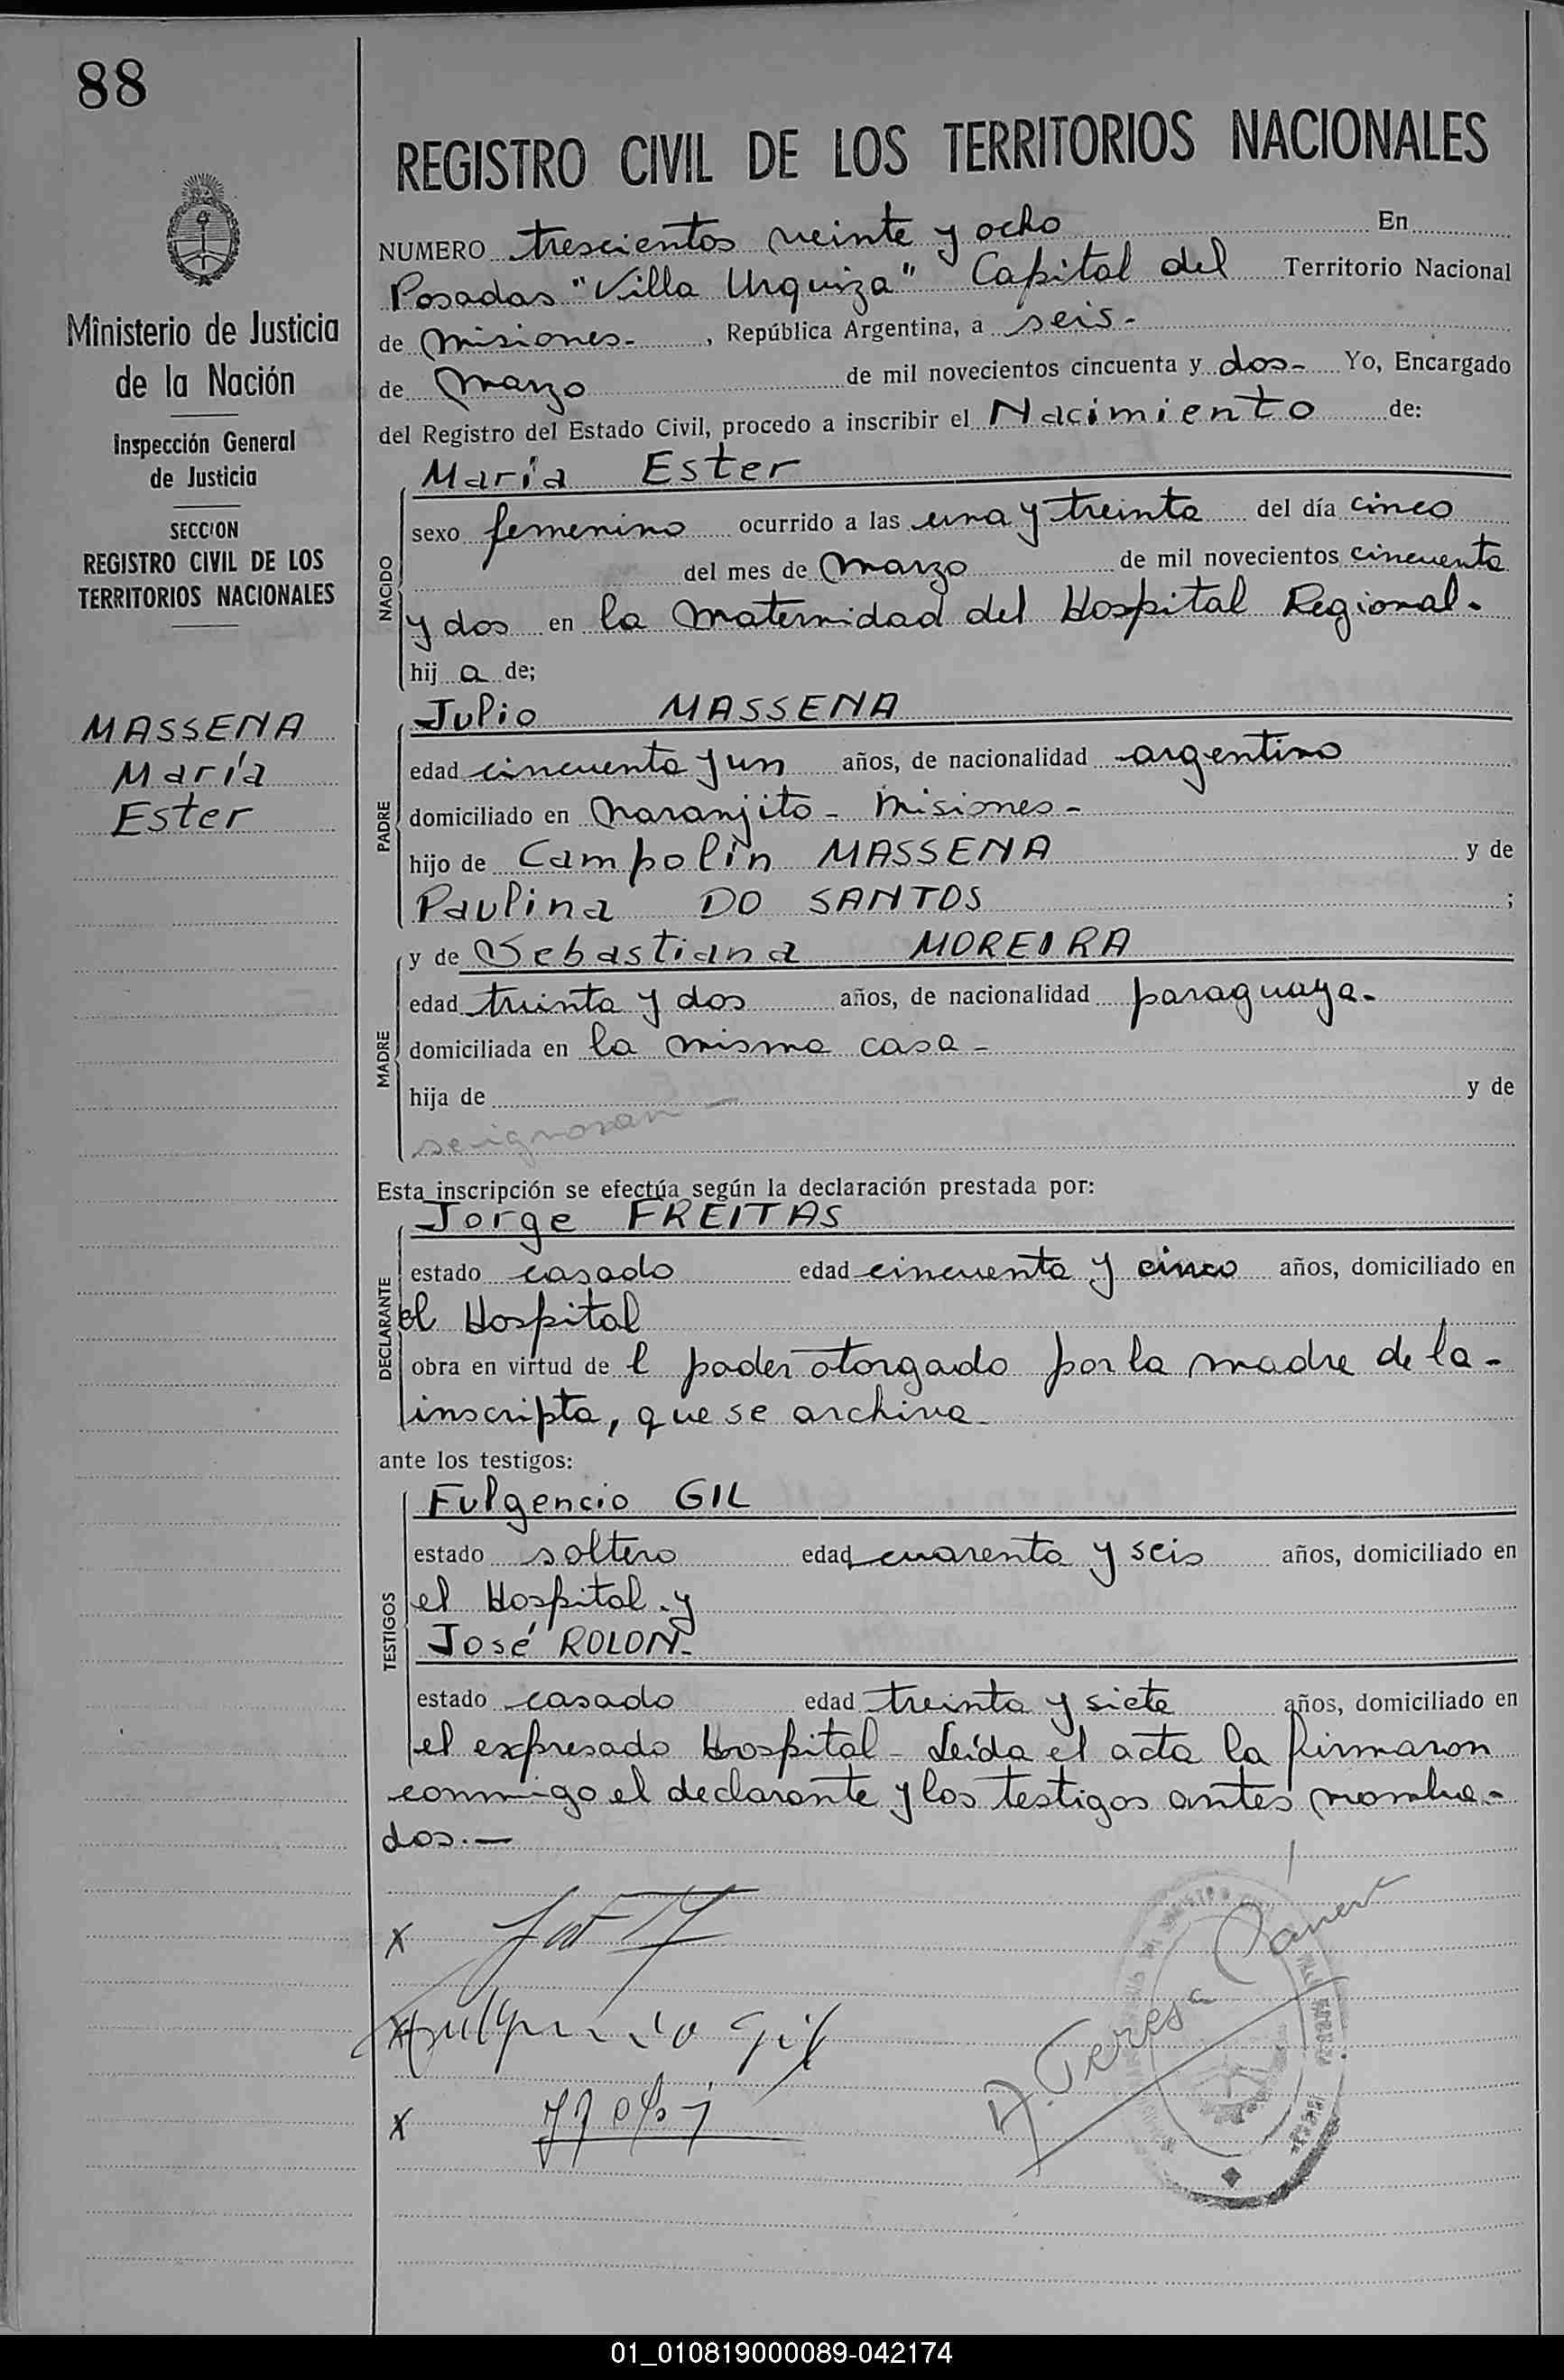 88
REGISTRO CIVIL DE LOS TERRITORIOS NACIONALES
Ministerio de Justicia
de la Nación
Inspección General
de Justicia
SECCION
REGISTRO CIVIL DE LOS
TERRITORIOS NACIONALES
MASSENA
María
Ester
NUMERO trescientos veinte y ocho En
Posadas "Villa Urquiza" Capital del Territorio Nacional
de Misiones-, República Argentina, a seis-
de Marzo de mil novecientos cincuenta y dos- Yo, Encargado
del Registro del Estado Civil, procedo a inscribir el Nacimiento de:
María Ester
NACIDO
sexo femenino ocurrido a las una y treinta del día cinco
del mes de Marzo de mil novecientos cincuenta
y dos en la Maternidad del Hospital Regional.
hij a de;
Julio MASSENA
PADRE
edad cincuenta y un años, de nacionalidad argentino
domiciliado en Naranjito - Misiones-
hijo de Campolin MASSENA y de
Paulina DO SANTOS ;
y de Sebastiana MOREIRA
MADRE
edad treinta y dos años, de nacionalidad paraguaya.
domiciliada en la misma casa-
hija de y de
se ignoran-
Esta inscripción se efectúa según la declaración prestada por:
Jorge FREITAS
DECLARANTE
estado casado edad cincuenta y cinco años, domiciliado en
el Hospital
obra en virtud de l poder otorgado por la madre de la-
inscripta, que se archiva-
ante los testigos:
Fulgencio GIL
TESTIGOS
estado soltero edad cuarenta y seis años, domiciliado en
el Hospital.y
José ROLON-
estado casado edad treinta y siete años, domiciliado en
el expresado Hospital- Leída el acta la firmaron
conmigo el declarante y los testigos antes nombra-
dos.—
x
x Fulgencio Gil
x
A. Teresa
01_010819000089-042174